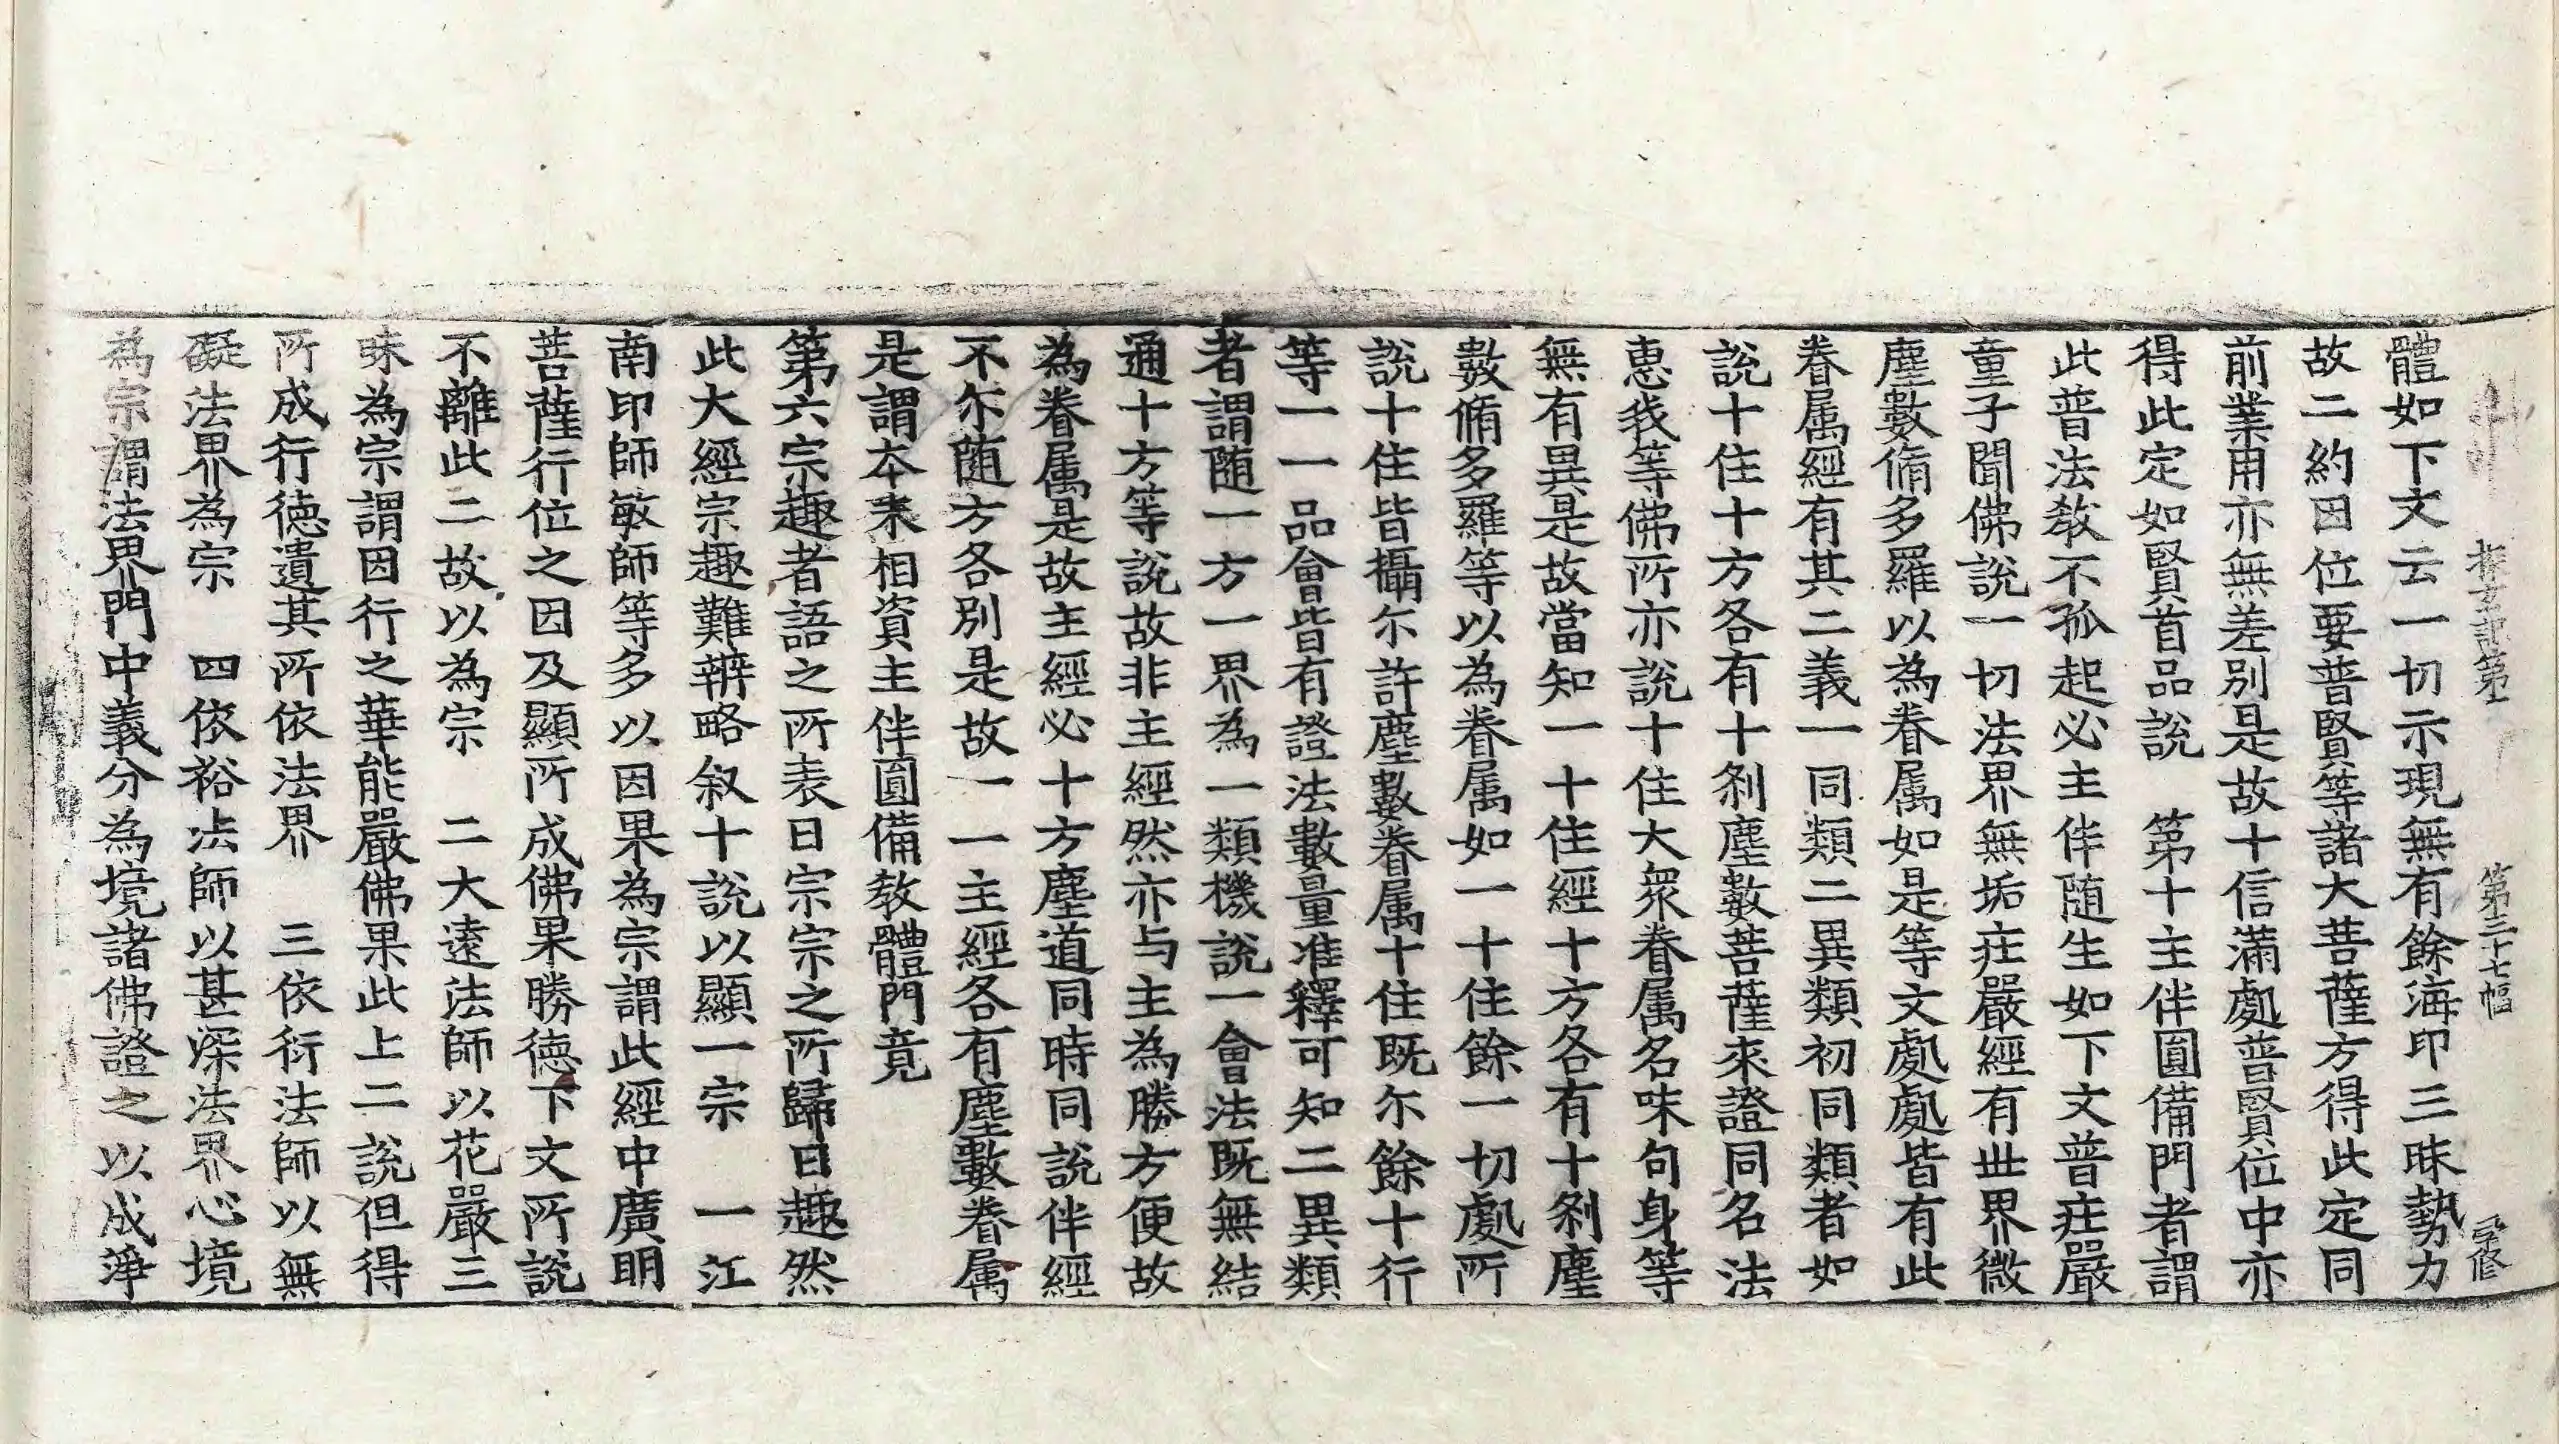 探玄記第一 第三十七幅 孕修
體如下文云一切示現無有餘海印三昧勢力
故二約因位要普賢等諸大菩薩方得此定同
前業用亦無差別是故十信滿處普賢位中亦
得此定如賢首品說 第十主伴圓備門者謂
此普法教不孤起必主伴随生如下文普庄嚴
童子聞佛說一切法界無垢庄嚴經有世界微
塵數脩多羅以為眷属如是等文處處皆有此
眷属經有其二義一同類二異類初同類者如
說十住十方各有十刹塵數菩薩來證同名法
惠我等佛所亦說十住大衆眷属名味句身等
無有異是故當知一十住經十方各有十刹塵
數脩多羅等以為眷属如一十住餘一切處所
說十住皆攝尓許塵數眷属十住既尓餘十行
等一一品會皆有證法數量准釋可知二異類
者謂随一方一界為一類機說一會法既無結
通十方等說故非主經然亦与主為勝方便故
為眷属是故主經必十方塵道同時同說伴經
不尓随方各別是故一一主經各有塵數眷属
是謂本来相資主伴圓備教體門竟
第六宗趣者語之所表曰宗宗之所歸曰趣然
此大經宗趣難辨略叙十說以顯一宗 一江
南印師敏師等多以因果為宗謂此經中廣明
菩薩行位之因及顯所成佛果勝德下文所說
不離此二故以為宗 二大遠法師以花嚴三
昧為宗謂因行之華能嚴佛果此上二說但得
所成行徳遺其所依法界 三依衍法師以無
礙法界為宗 四依裕法師以甚深法界心境
為宗謂法界門中義分為境諸佛證之以成淨